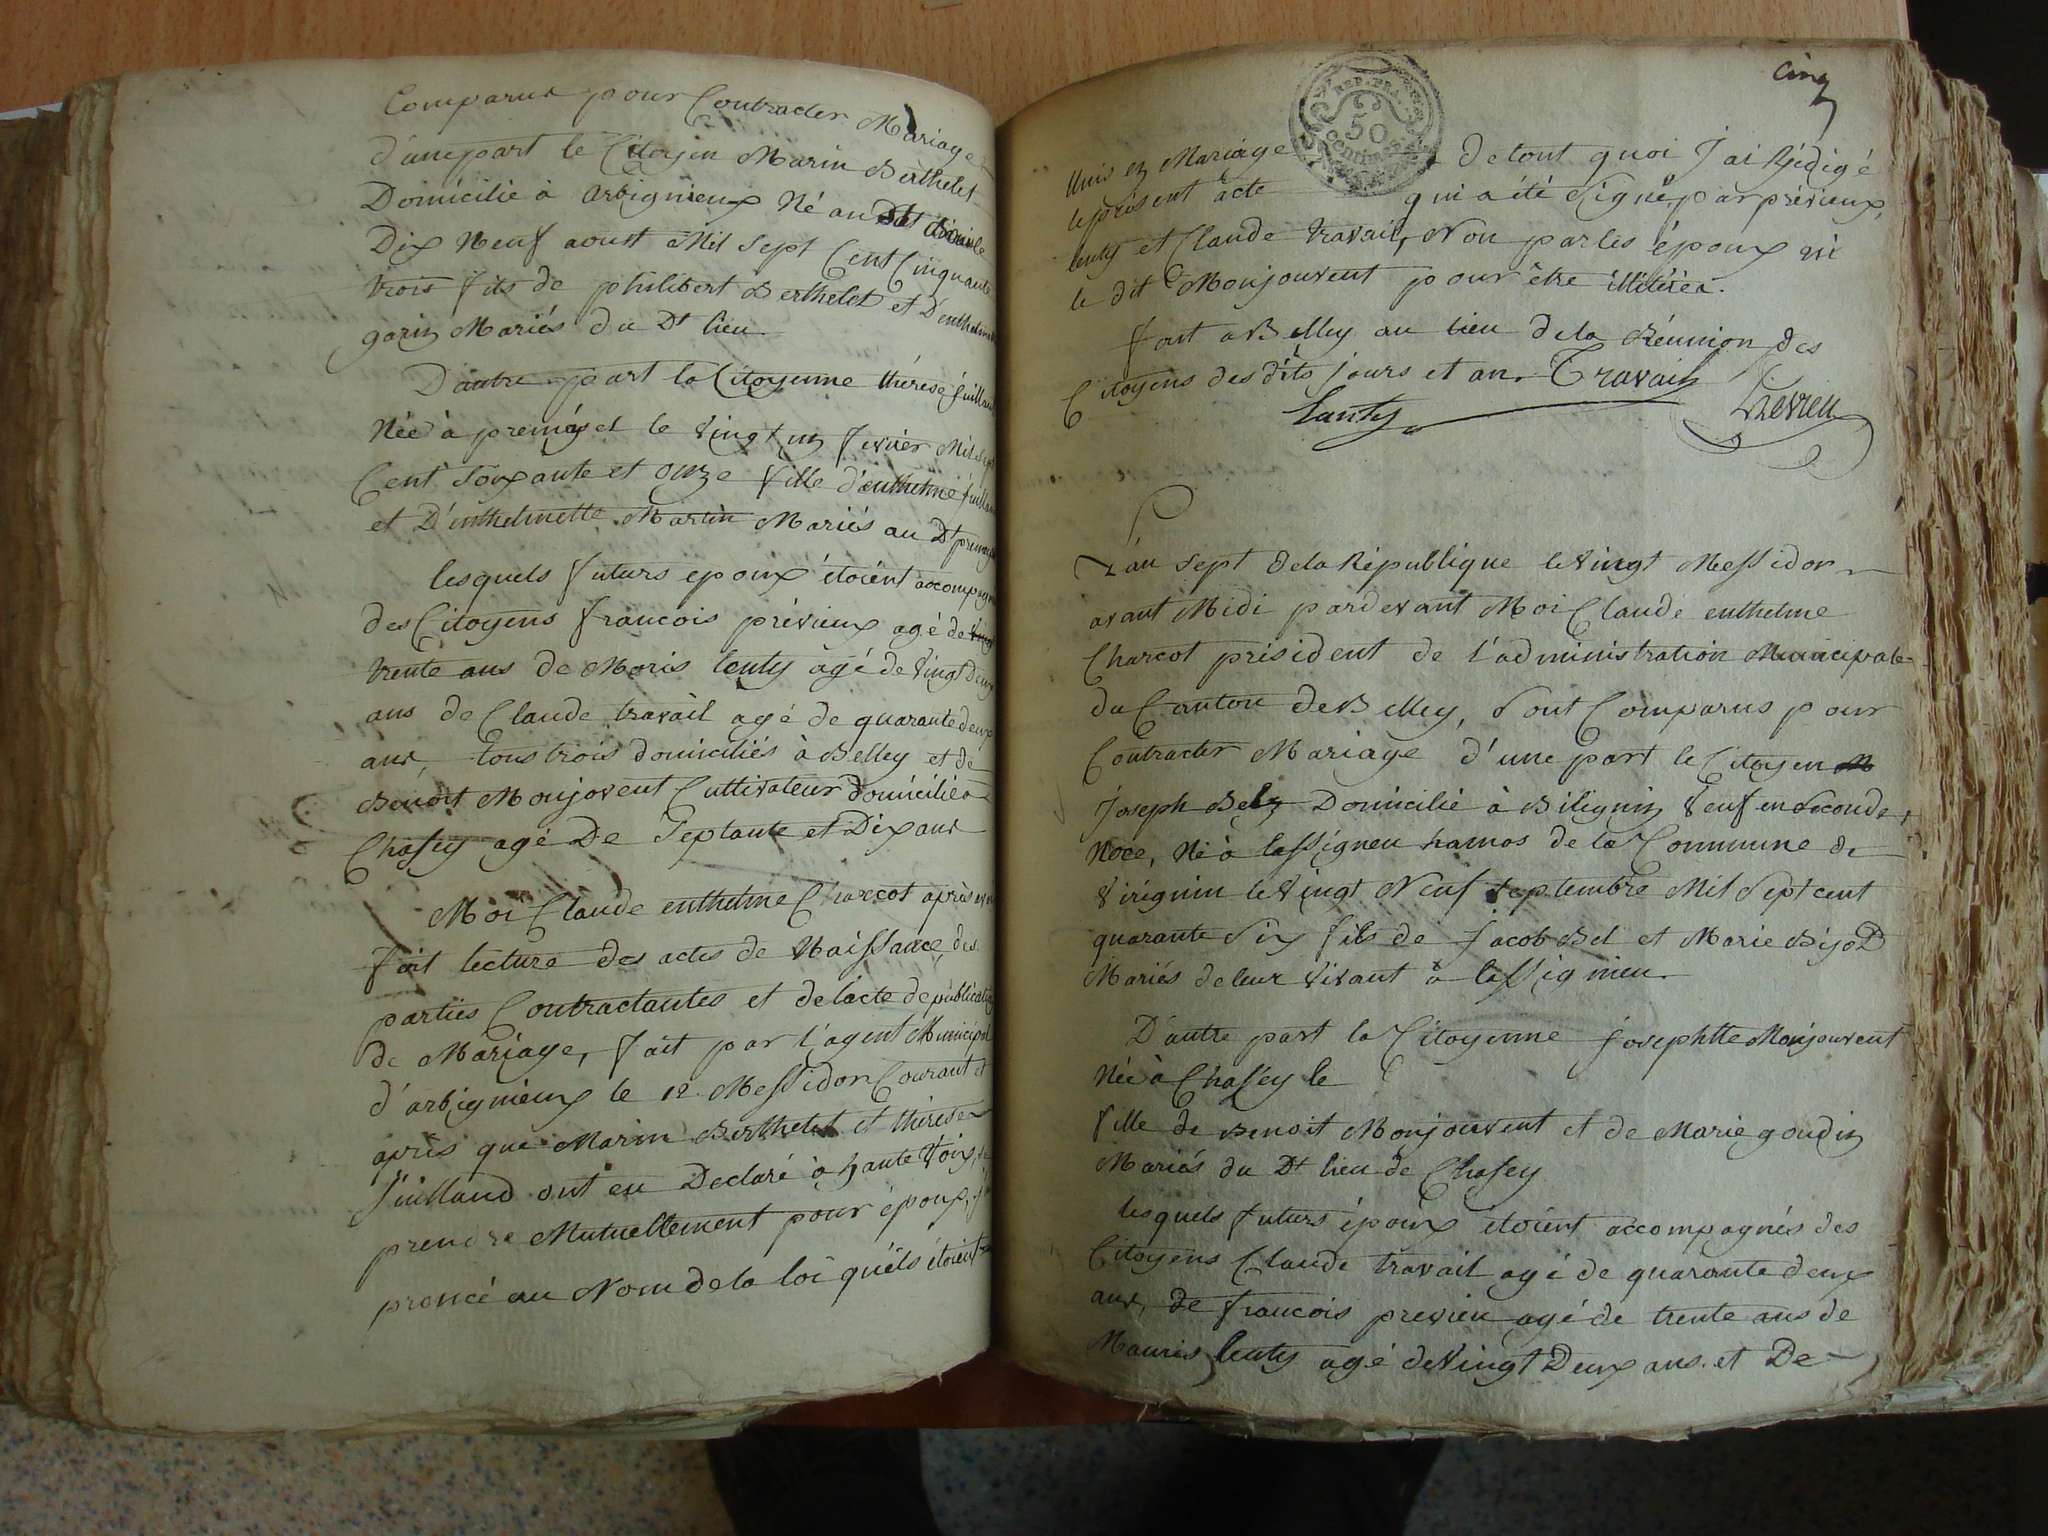 Comparus pour Contracter Mariage
d'une part le Citoyen Marin Berthelet
Domicilié à arbignieux Né au Dt
Dix Neuf aoust Mil sept Cent Cinquante
trois fils de philibert Berthelet et D'enthelmette
garin Mariés du Dt lieu.
D'autre part la Citoyenne thérese
Née à premeyzel le vingt un fevrier Mil sept
Cent soixante et onze fille d'enthelme
et D'enthelmette Martin Mariés au Dt
lesquels futurs epoux étoient accompagnés
des Citoyens francois prévieux agé de vingt
trente ans de Moris lenty agé de vingt Deux
ans de Claude travail agé de quarante deux
ans, tous trois domiciliés à Belley et de
Benoit Monjovent Cultivateur domicilié a
Chasey agé De septante et Dix ans
Moi Claude enthelme Charcot après avoir
fait lecture des actes de Naissance, des
parties Contractantes et de lacte de publication
de Mariage, fait par l'agent Municipal
d'arbignieux le 12 Messidor Courant et
après que Marin Berthelet et thérese
ont eu Declaré à haute voix, se
prendre Mutuellement pour époux,
prononcé au Nom de la loi qu'ils étoient
Cinq
REP. FRA.
50
Centimes
Unis en Mariage de tout quoi J'ai Rédigé
le présent acte qui a été signé par prévieux,
lenty et Claude travail, Non par les époux ni
le dit Monjouvent pour être illitérés.
fait a Belley au lieu de la Réunion des
Citoyens des dits jours et an. Travail
Lenty Previeu
L'an sept de la République le vingt Messidor
avant Midi pardevant Moi Claude enthelme
Charcot président de l'administration Municipale
du Canton de Belley, sont Comparus pour
Contracter Mariage d'une part le Citoyen M
Joseph Bel Domicilié à Bilignin veuf en seconde
Noce, Né à lassigneu hamos de la Commune de
virignin le vingt Neuf septembre Mil sept cent
quarante six fils de Jacob Bel et Marie Bijod
Mariés de leur vivant à lassignieu.
D'autre part la Citoyenne Josephtte Monjouvent
Née à Chasey le
fille de Benoit Monjouvent et de Marie goudin
Mariés du Dt lieu de Chasey
lesquels futurs époux étoient accompagnés des
Citoyens Claude travail agé de quarante deux
ans, de francois previeu agé de trente ans de
Mauris lenty agé de vingt Deux ans et De